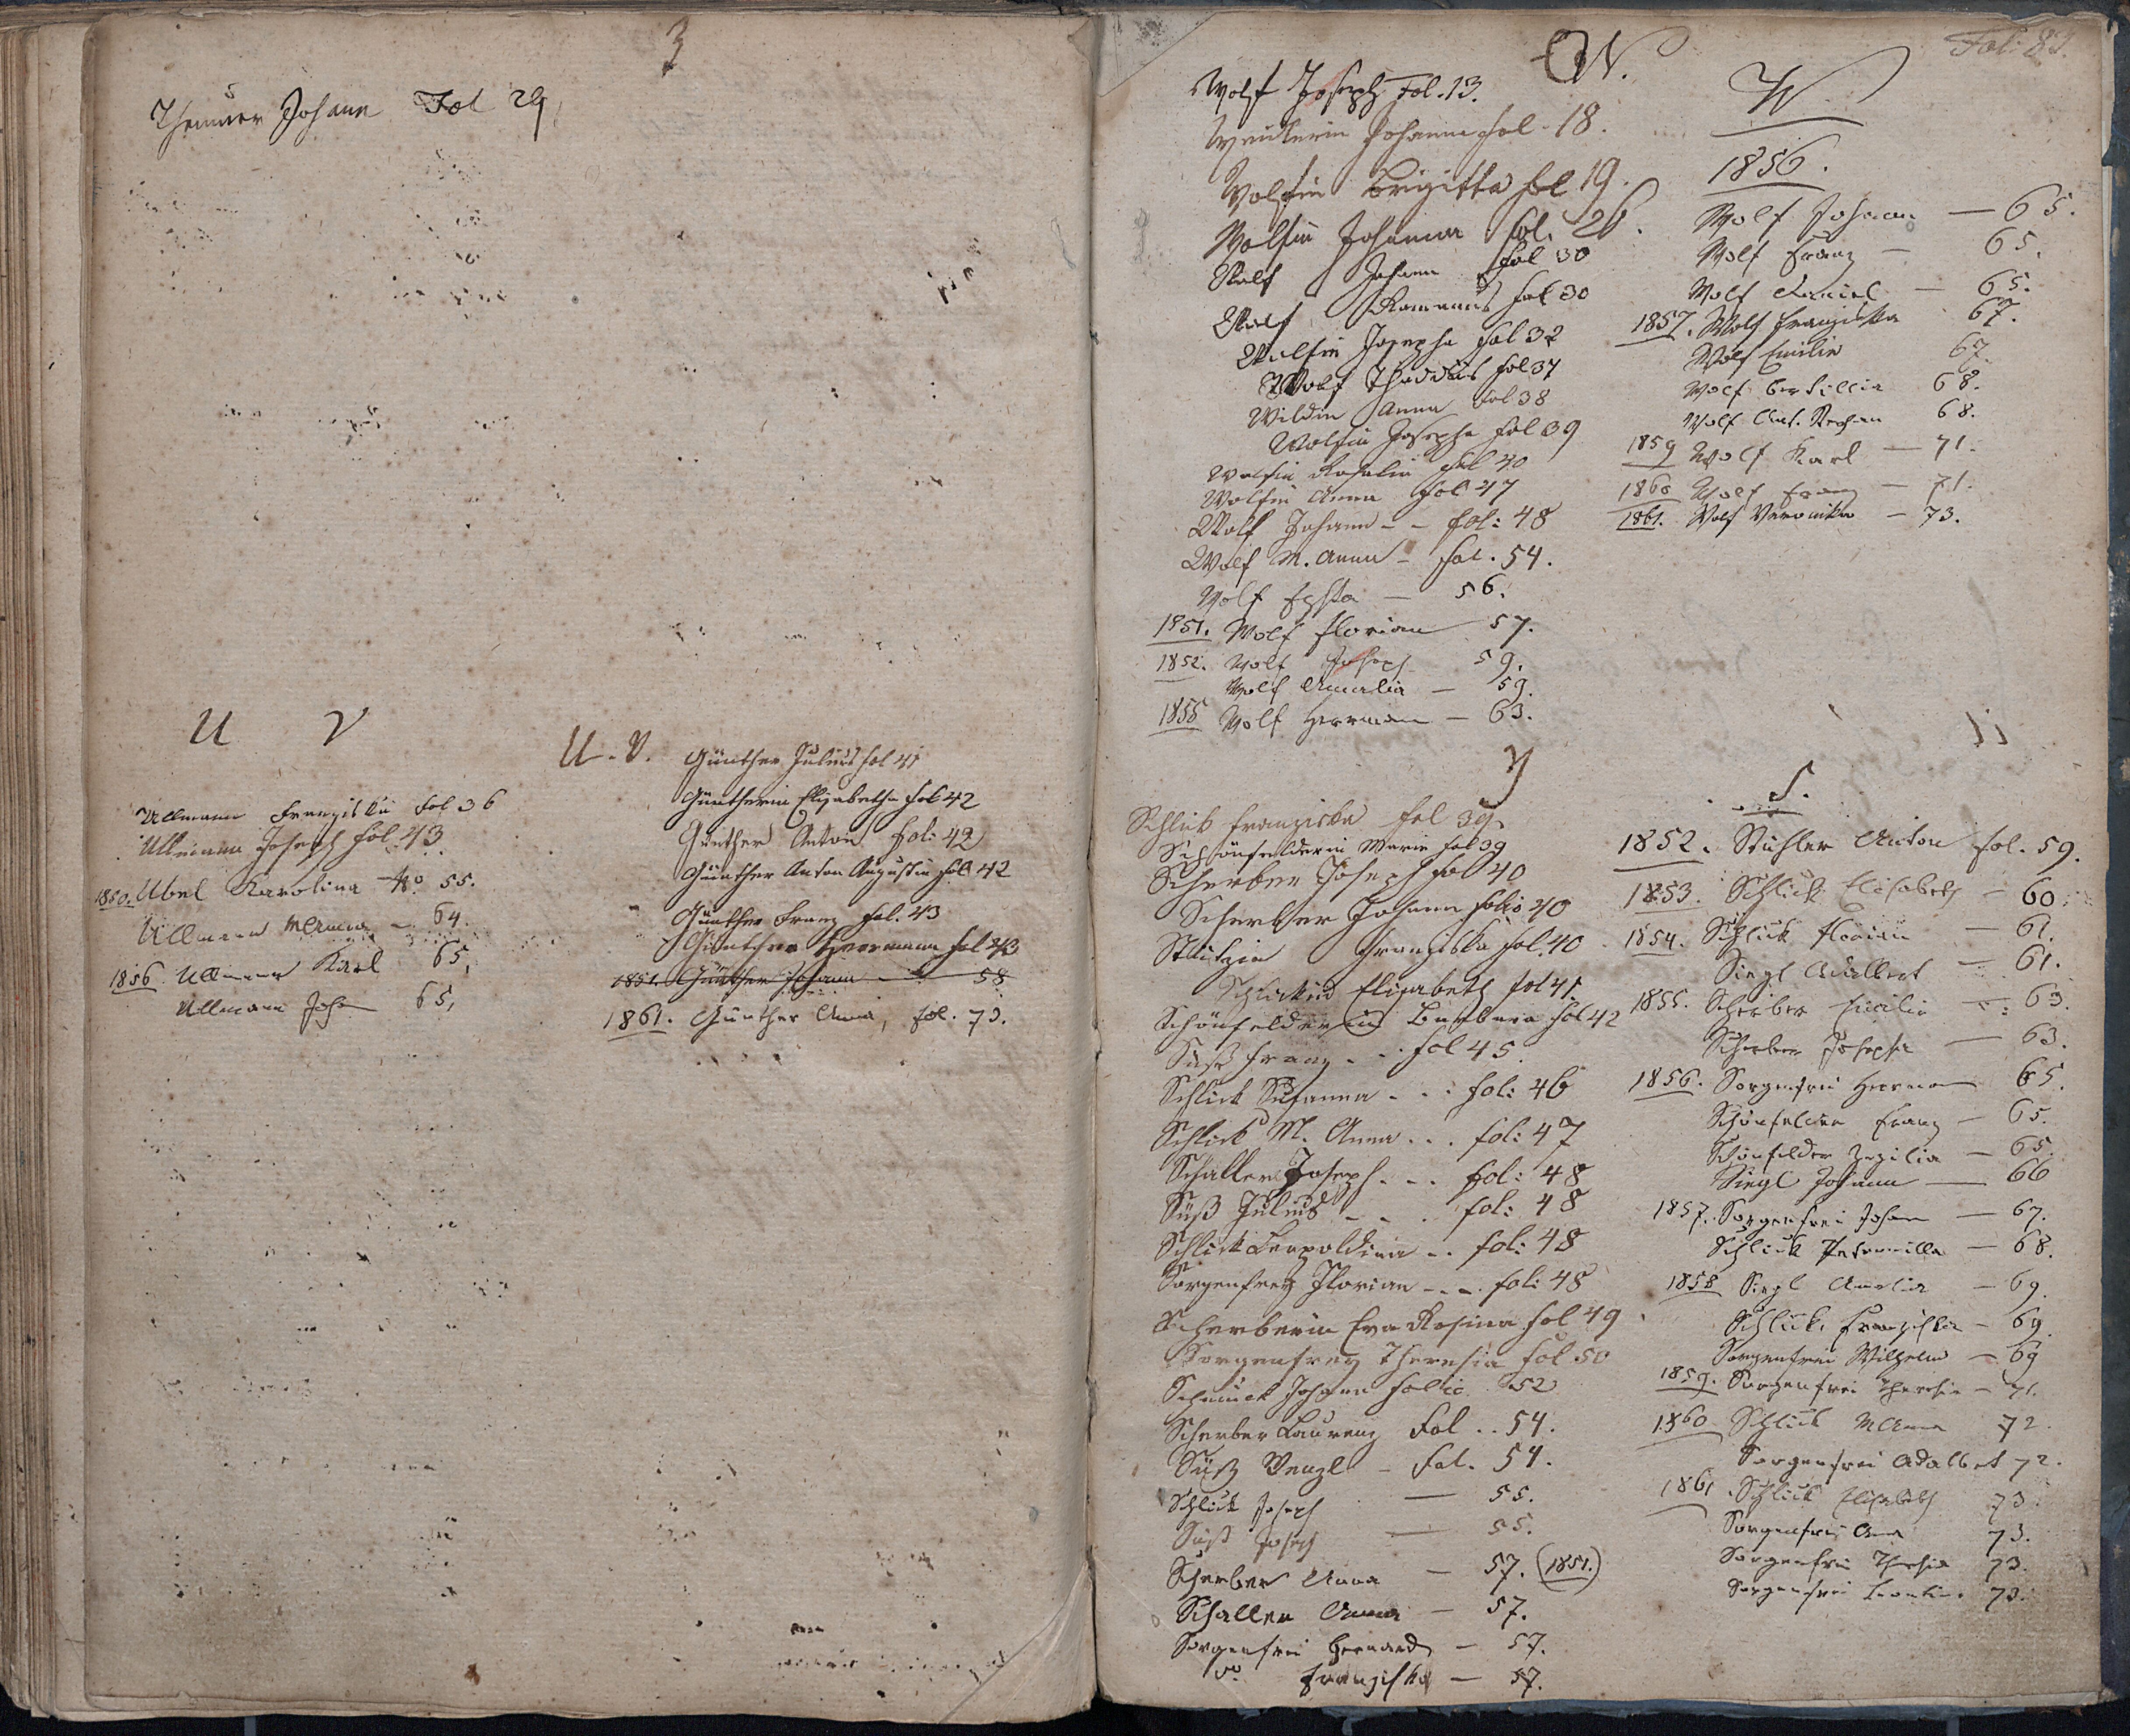 3
Johann Fol 29
U V
Ullmann Franziska Fol 36
Ullmann Joseph fol 43
1850. Ubel Karolina No 55.
Ullmann MAnna - 64.
1856 Ullmann Karl 65,
Ullmann Joh 65,
U. V.
Günther Julius fol 41
Güntherin Elisabetha fol 42
Günther Anton Fol: 42
Günther Anton Augustin fol 42
Günther Franz fol. 43
Günther Herrmann fol 43
1851. Günther Johann - 58
1861. Günther Anna, fol. 73.
Fol: 83.
W.
Wolf Joseph Fol. 13.
Johanna fol. 18.
Wolfin Brigitta fol 19.
Wolfin Johanna fol. 26.
Wolf Johann fol 30
Wolf Romanus fol 30
Wolfin Josepha fol 32
Wolf Thaddäus fol 37
Wildin Anna fol 38
Wolfin Josepha fol 39
Wolfin Rosalia fol 40
Wolfin Anna fol 47
Wolf Johann - - fol: 48
Wolf M. Anna - fol. 54.
Wolf - 56.
1851. Wolf Florian 57.
1852. Wolf Joseph 59.
Wolf Amalia - 59.
1855 Wolf Herrman - 63.
W
1856.
Wolf Johann - 65.
Wolf Franz - 65.
Wolf Daniel - 65.
1857. Wolf Franziska 67.
Wolf Emilie 67.
Wolf 68.
Wolf Ant. Stephan 68.
1859 Wolf Karl - 71.
1860 Wolf Franz - 71.
1861. Wolf Veronika - 73.
Schlick Franziska fol 39
Schönfelderin Marie fol 39
Scherber Joseph fol 40
Scherber Johann folio 40
Franziska fol. 40
Schlickin Elisabeth fol 41
Schönfelderin Barbara fol 42
Süß Franz . . . fol 45.
Schlick Susanna . . . fol: 46
Schlick M. Anna . . . fol: 47
Schaller Joseph . . . fol: 48
Süß Julius - . . fol: 48
Schlick Leopoldina . . fol: 48
Sorgenfrey Florian - - . fol: 48
Scherberin Eva Rosina fol 49
Sorgenfrey Theresia fol 50
Johann folio 52
Scherber Laurenz Fol . . 54.
Süß Wenzl - Fol. 54.
Schlick Joseph - 55.
Süß Joseph - 55.
Scherber Anna - 57. (1851.)
Schaller Anna - 57.
Sorgenfrei Bernard - 57.
do Franziska - 57.
S.
1852. Stichler Anton fol. 59.
1853. Schlick Elisabeth - 60.
1854. Schlick Florian - 61.
Siegl Adalbert - 61.
1855. Scherber Cecilie - 63.
Scherber Josepha - 63.
1856. Sorgenfrei Herrman 65.
Schönfelder Franz - 65.
Schönfelder Zezilia - 65.
Siegl Johann - 66
1857. Sorgenfrei Johan - 67.
Schlick Petronilla - 68.
1858 Siegl Amalia - 69.
Schlick Franziska - 69.
Sorgenfrei Wilhelm - 69
1859. Sorgenfrei Theresia - 71.
1860 Schlick MAnna 72.
Sorgenfrei Adalbert 72.
1861 Schlick Elisabeth 73.
Sorgenfrei Anna 73.
Sorgenfrei Theresia 73.
Sorgenfrei 73.